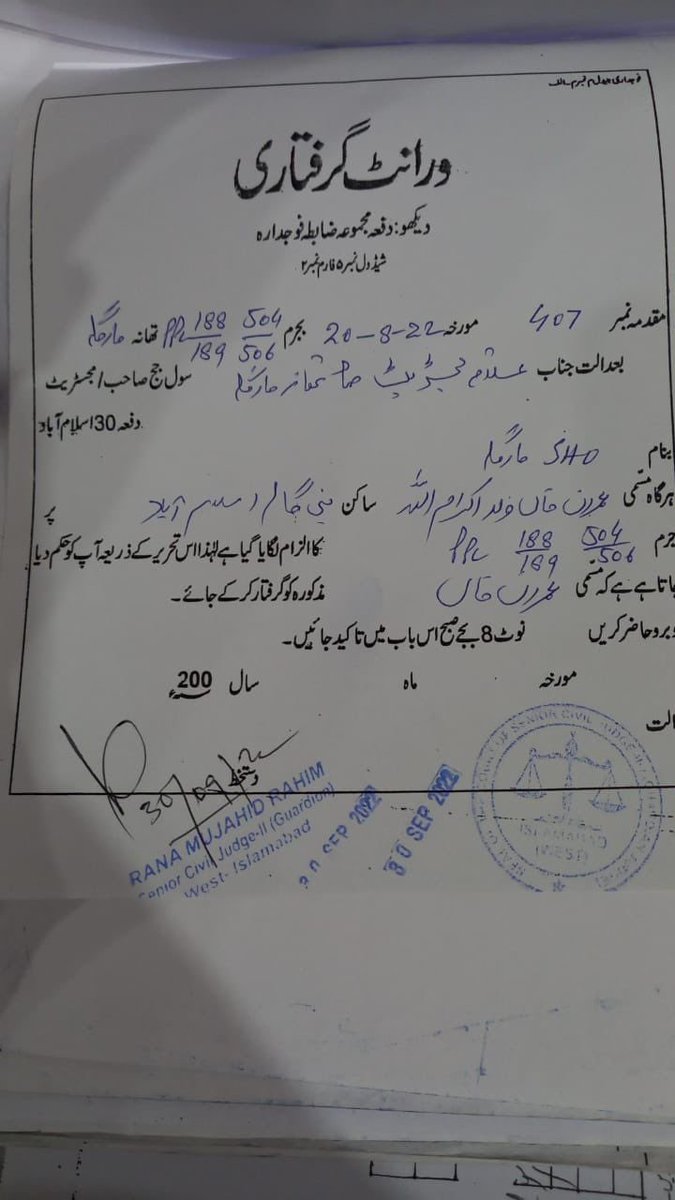 فوجداری جدول نمبر سالانہ
ورانٹ گرفتاری
دیکھو: دفعہ مجموعہ ضابطہ فوجدارہ
شیڈول نمبر ۵ فارم نمبر ۲
مقدمہ نمبر 407 مورخہ 20-8-22 بجرم 504/506 188/189 PPC تھانہ مارگلہ
بعدالت جناب علاقہ مجسٹریٹ صاحب تھانہ مارگلہ سول جج صاحب امجسٹریٹ
دفعہ 30 اسلام آباد
بنام SHO مارگلہ
ہرگاہ مسمّی عمران خان ولد اکرام اللہ ساکن بنی گالہ اسلام آباد پر
جرم 504/506 188/189 PPC کا الزام لگایا گیا ہے لہٰذا اس تحریر کے ذریعہ آپ کو حکم دیا
جاتا ہے ہے کہ مسّمی عمران خان مذکورہ کو گرفتار کر کے جائے۔
وبرو حاضر کریں نوٹ 8 بجے صبح اس باب میں تاکید جائیں۔
مورخہ ماہ سال 200ء
الت
دستخط
30/09/22
RANA MUJAHID RAHIM
Senior Civil Judge-II (Guardian)
West- Islamabad
30 SEP 2022
30 SEP 2022
SENIOR CIVIL JUDGE
ISLAMABAD
(WEST)